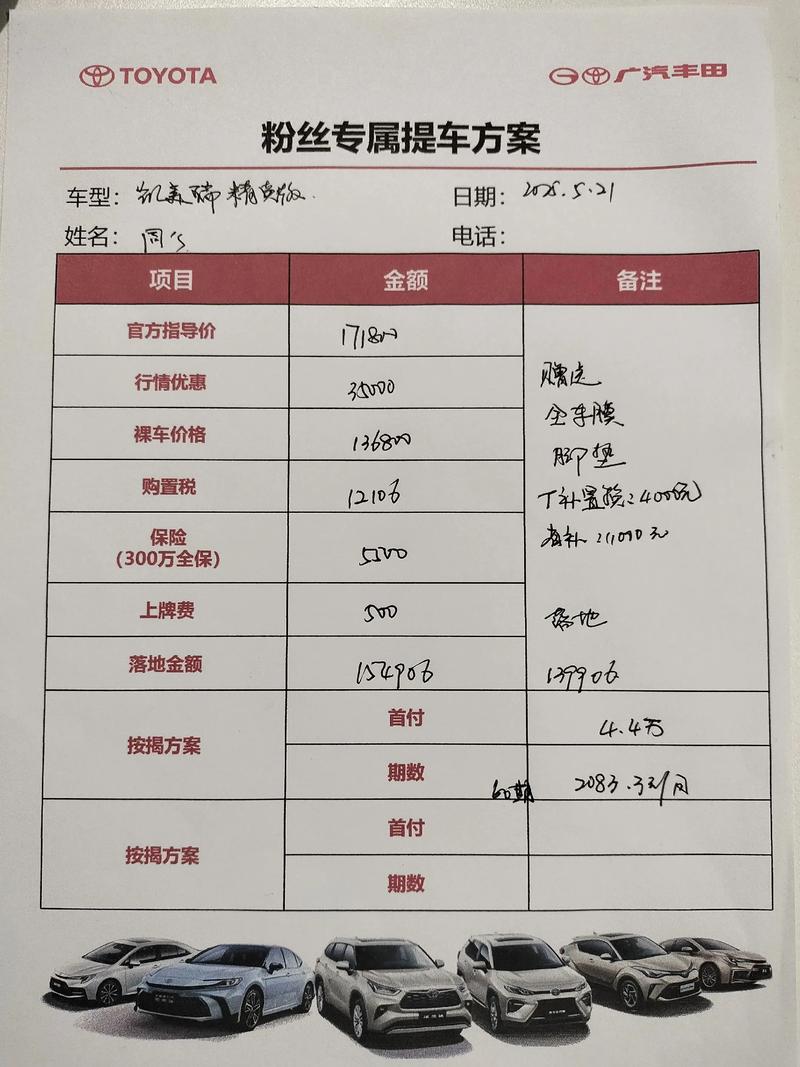 TOYOTA
广汽丰田
粉丝专属提车方案
车型: 凯美瑞 精英版.
日期: 2025.5.21
姓名: 周
电话:
项目 金额 备注
官方指导价 171800
行情优惠 35000
裸车价格 136800
购置税 12106
保险
(300万全保) 5500
上牌费 500
落地金额 154906
赠送
全车膜
脚垫
厂补置换:4000元
省补:11000元
落地
139906
按揭方案 首付 4.4万
期数 60期 2083.3元/月
按揭方案 首付
期数